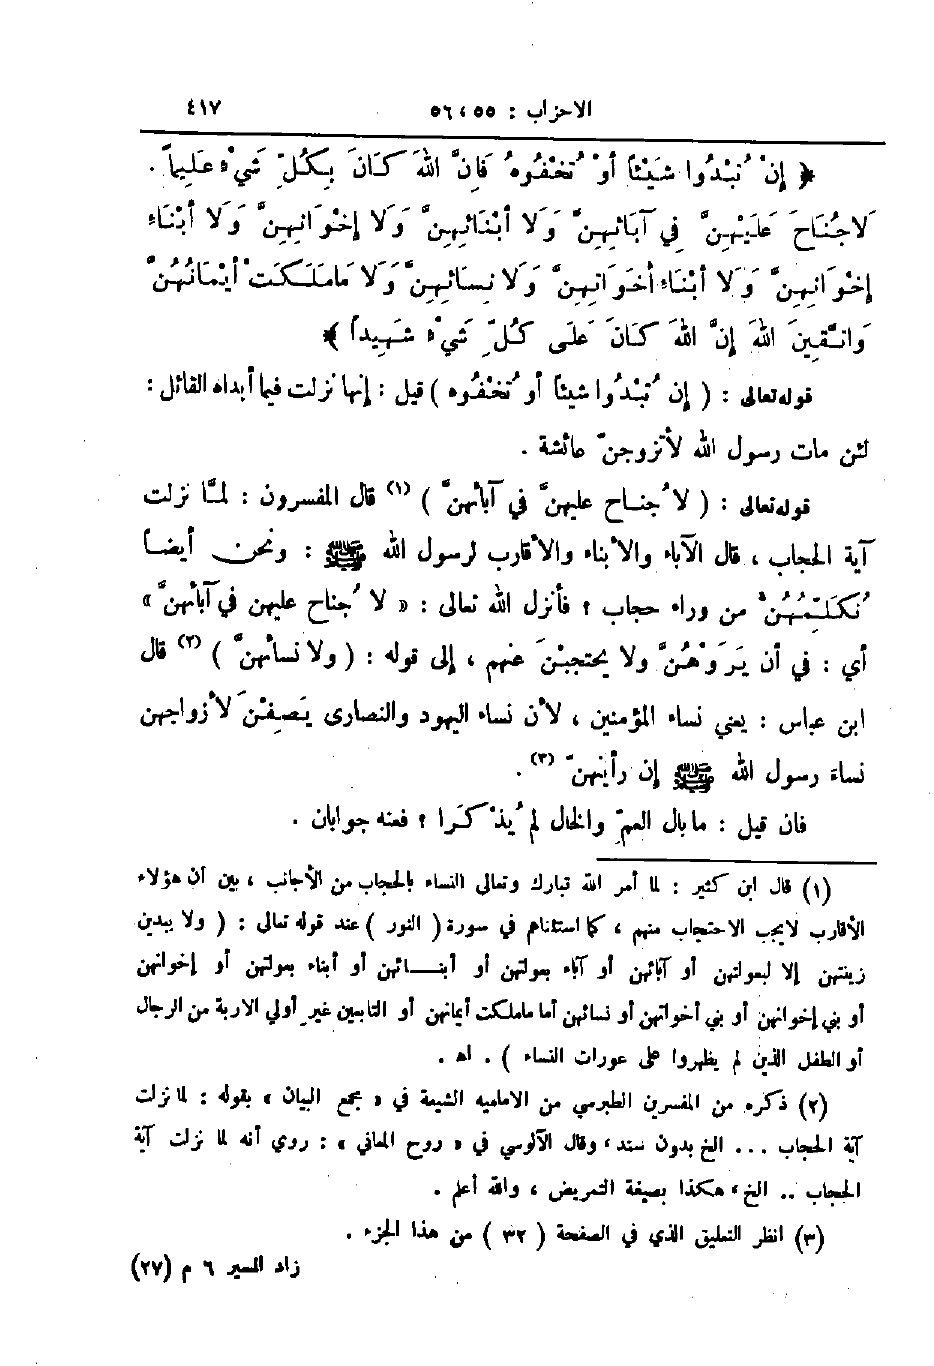 الاحزاب : ٥٥ ، ٥٦ ٤١٧
﴿ إِنْ تُبْدُوا شَيْئاً أَوْ تُخْفُوهُ فَإِنَّ اللهَ كَانَ بِكُلِّ شَيْءٍ عَلِيماً .
لَاجُنَاحَ عَلَيْهِنَّ فِي آبَائِهِنَّ وَلَا أَبْنَائِهِنَّ وَلَا إِخْوَانِهِنَّ وَلَا أَبْنَاءِ
إِخْوَانِهِنَّ وَلَا أَبْنَاءِ أَخَوَاتِهِنَّ وَلَا نِسَائِهِنَّ وَلَا مَامَلَكَتْ أَيْمَانُهُنَّ
وَاتَّقِينَ اللهَ إِنَّ اللهَ كَانَ عَلَى كُلِّ شَيْءٍ شَهِيداً ﴾
قوله تعالى : ( إِن تُبْدُوا شيئاً أو تُخْفُوه ) قيل : إِنها نزلت فيما أبداه القائل :
لئن مات رسول الله لأتزوجنّ عائشة .
قوله تعالى : ( لا جُناح عليهنَّ في آبائهنَّ ) (١) قال المفسرون : لمَّا نزلت
آية الحجاب ، قال الآباء والأبناء والأقارب لرسول الله ﷺ : ونحن أيضاً
نُكَلِّمُهُنَّ من وراء حجاب ؟ فأنزل الله تعالى : « لا جُناح عليهن في آبائهنَّ »
أي : في أن يَرَوْهُنَّ ولا يحتجبْنَ عنهم ، إِلى قوله : ( ولا نسائهنَّ ) (٢) قال
ابن عباس : يعني نساء المؤمنين ، لأن نساء اليهود والنصارى يَصِفْنَ لأزواجهن
نساءَ رسول الله ﷺ إِن رأينهنّ (٣) .
فان قيل : ما بال العمِّ والخال لم يُذْكَرا ؟ فعنه جوابان .
(١) قال ابن كثير : لما أمر الله تبارك وتعالى النساء بالحجاب من الأجانب ، بين أن هؤلاء
الأقارب لايجب الاحتجاب منهم ، كما استثناهم في سورة ( النور ) عند قوله تعالى : ( ولا يبدين
زينتهن إلا لبعولتهن أو آبائهن أو آباء بعولتهن أو أبنــائهن أو أبناء بعولتهن أو إخوانهن
أو بني إخوانهن أو بني أخواتهن أو نسائهن أماماملكت أيمانهن أو التابعين غير أولي الاربة من الرجال
أو الطفل الذين لم يظهروا على عورات النساء ) . اه .
(٢) ذكره من المفسرين الطبرسي من الامامية الشيعة في « مجمع البيان » بقوله : لما نزلت
آية الحجاب ... الخ بدون سند ، وقال الآلوسي في « روح المعاني » : روي أنه لما نزلت آية
الحجاب .. الخ ، هكذا بصيغة التمريض ، والله أعلم .
(٣) انظر التعليق الذي في الصفحة ( ٣٢ ) من هذا الجزء .
زاد المسير ٦ م (٢٧)